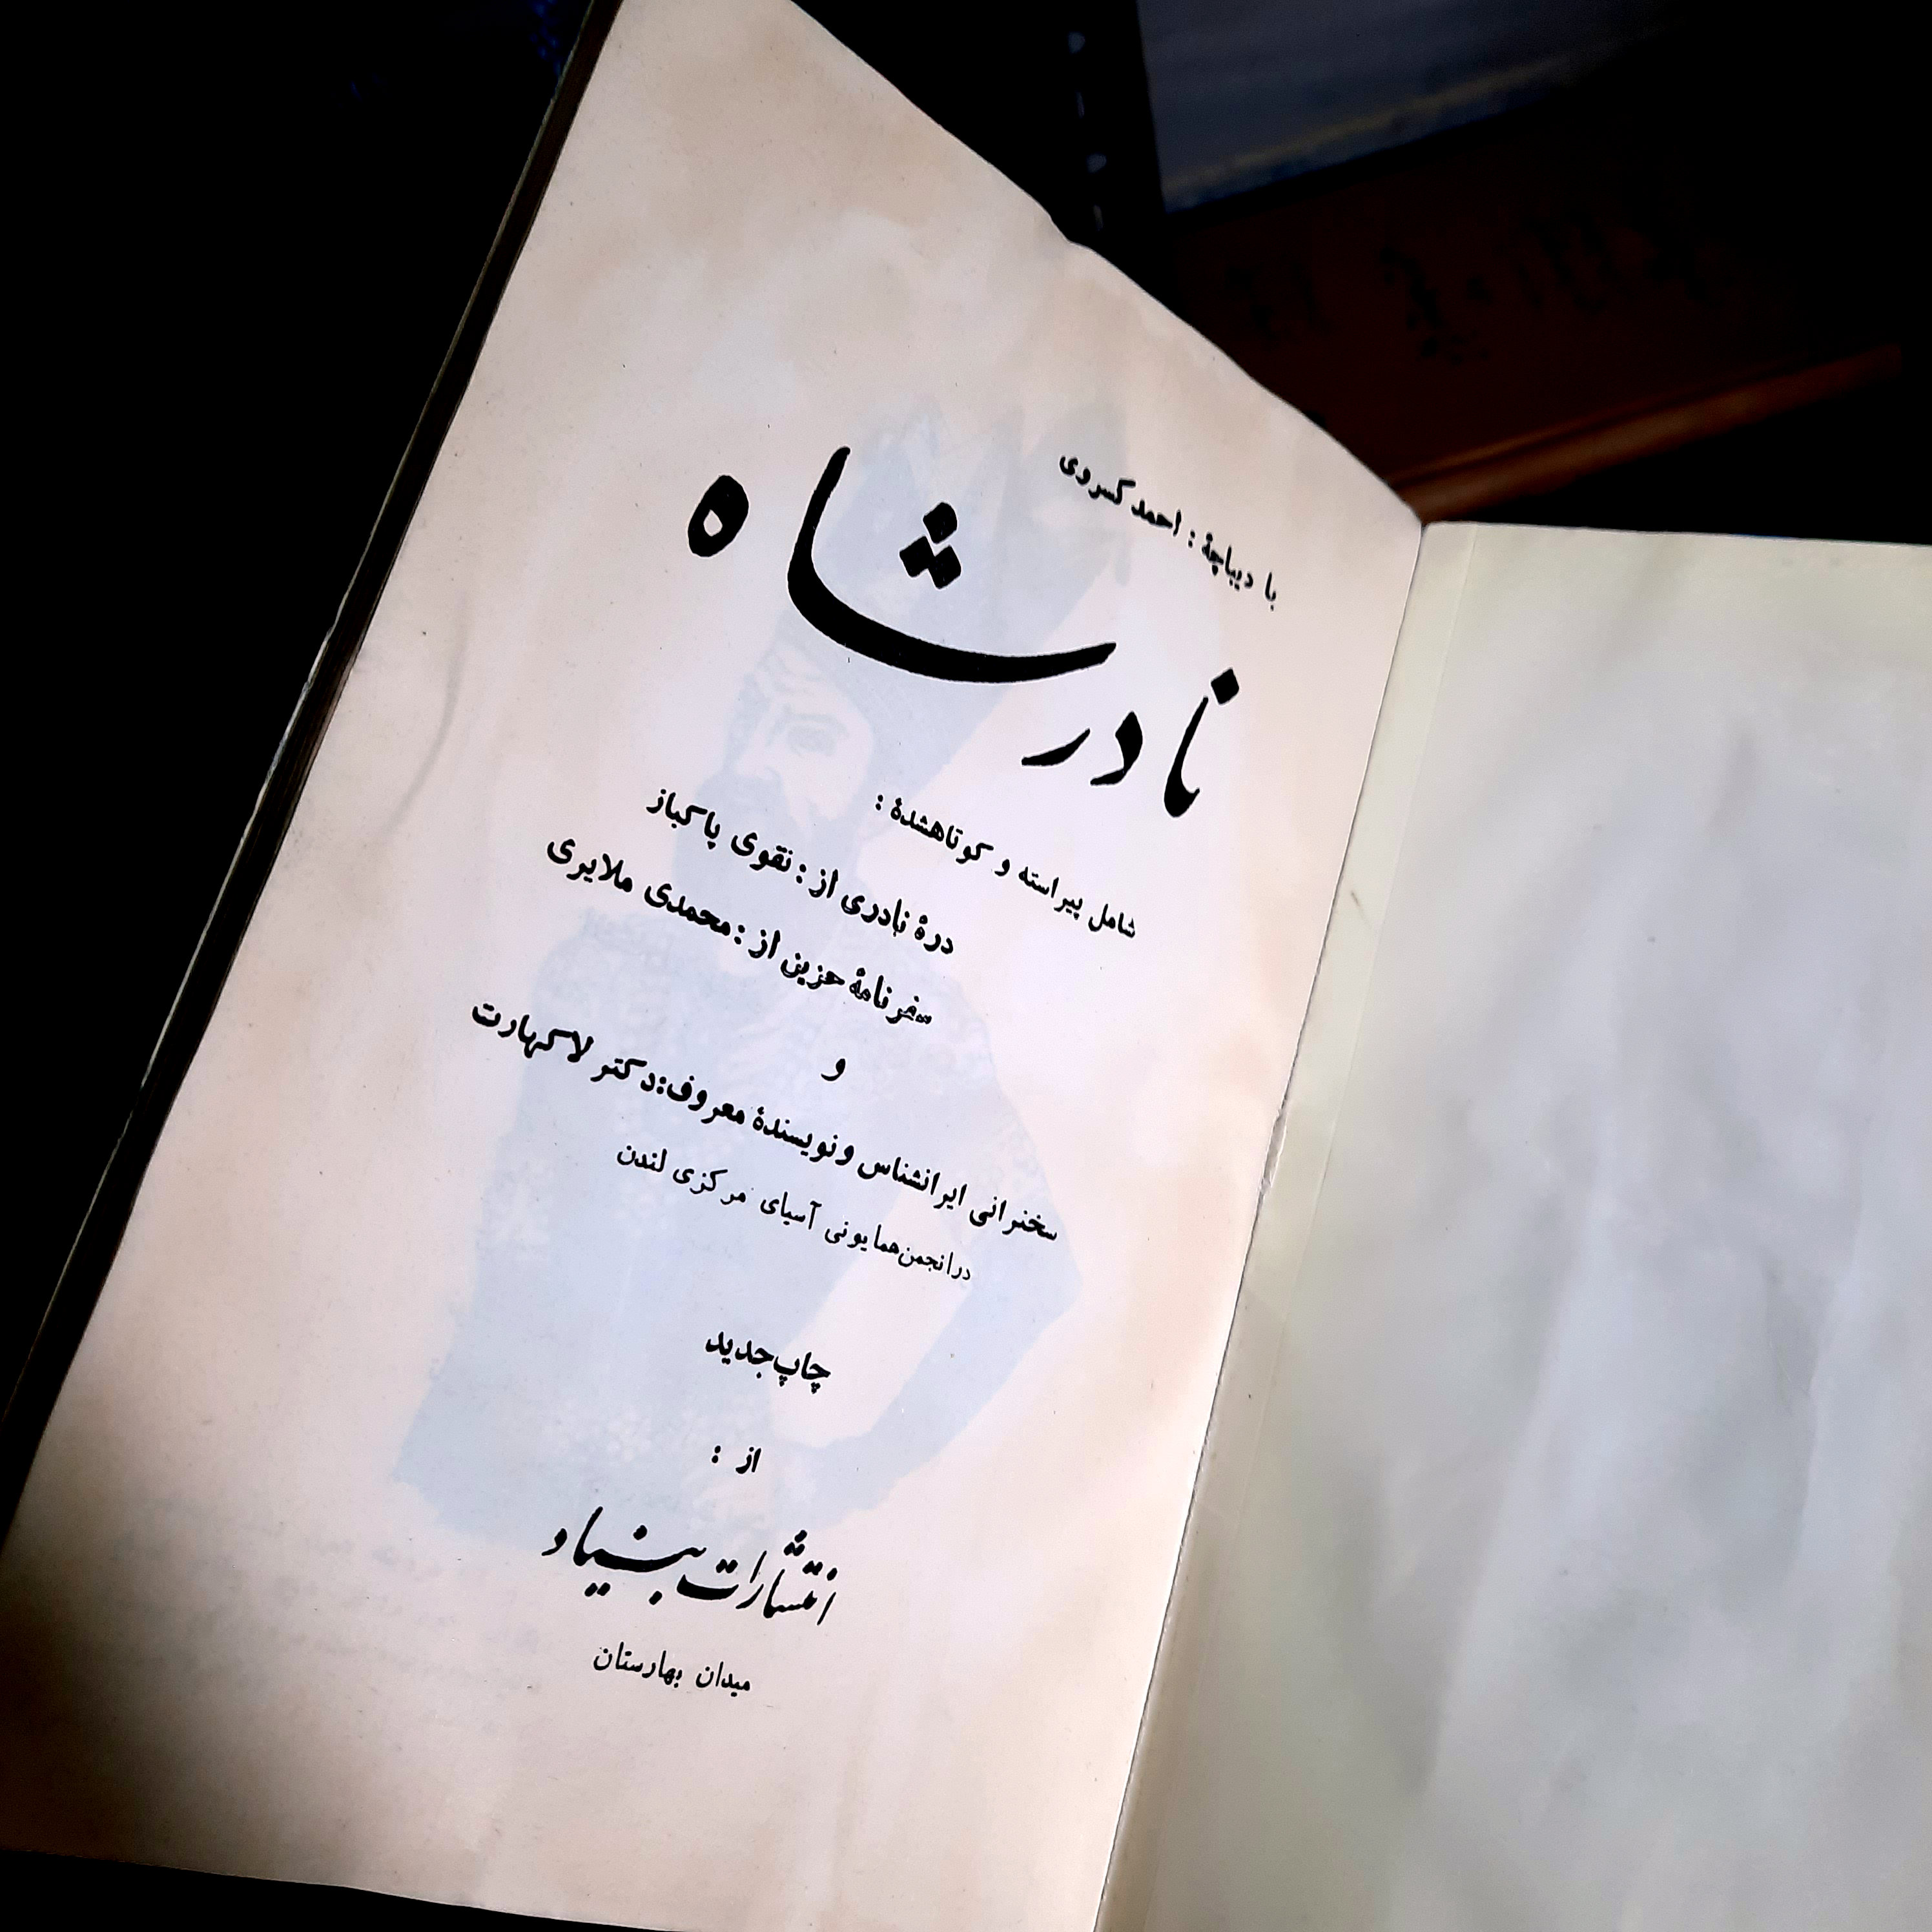 با دیباچهٔ : احمد کسروی
نادرشاه
شامل پیراسته و کوتاهشدهٔ :
درهٔ نادری از : نقوی پاکباز
سفرنامهٔ حزین از : محمدی ملایری
و
سخنرانی ایرانشناس و نویسندهٔ معروف : دکتر لاکهارت
در انجمن همایونی آسیای مرکزی لندن
چاپ جدید
از :
انتشارات بنیاد
میدان بهارستان